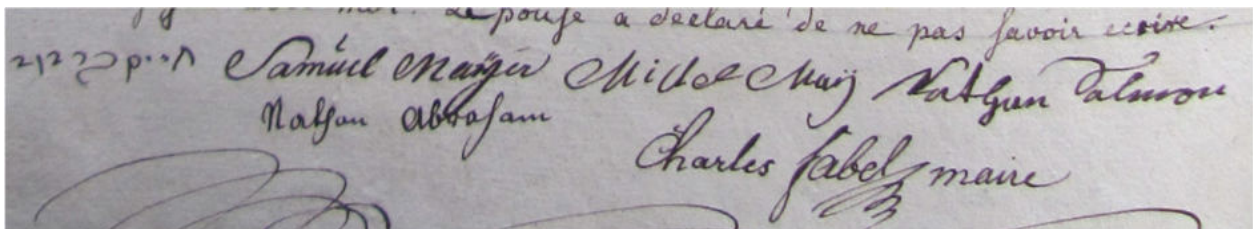 avec moi. L'epouse a declaré de ne pas savoir ecrire.
Samuel Mayer Michel May Nathan Salmon
Nathan Abraham
Charles Sabel maire